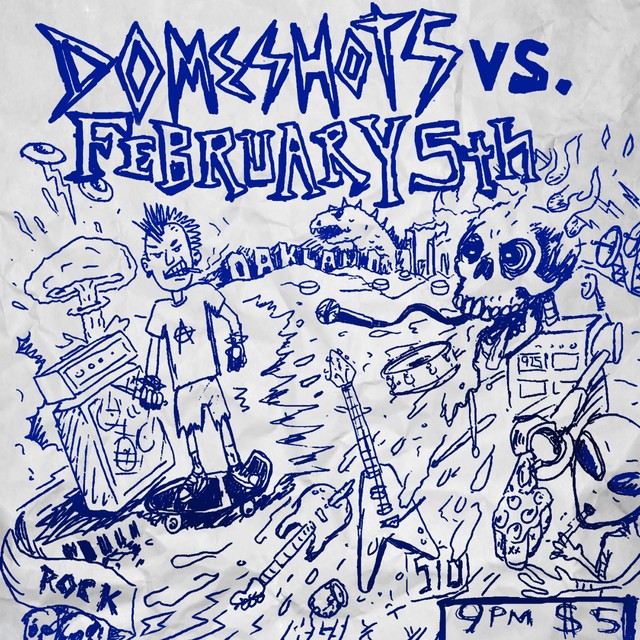 DOMESHOTS VS.
FEBRUARY 5th
OAKLAND
A
925
ROCK
510
XX
9PM $5